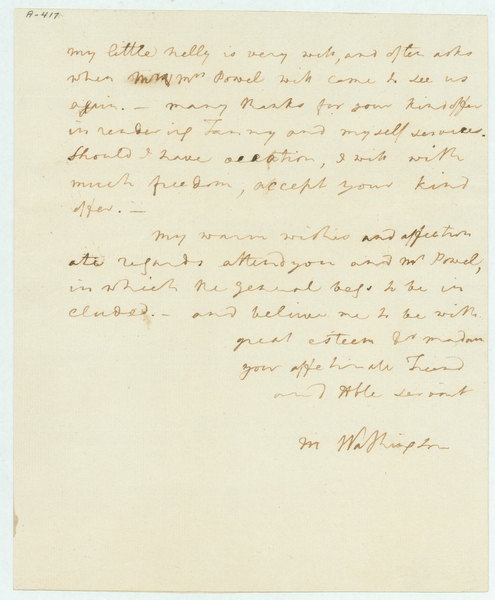 A-417
my little Nelly is very well, and often asks
when mrs Powel will come to see us
again. — many thanks for your kind offer
in rendering Fanny and myself services.
Should I have occation, I will with
much freedom, accept your kind
offer. —
my warm wishes and affection
ate regards attend you and mr Powel,
in which the General begs to be in
cluded. — and believe me to be with
great esteem Dr madam
your affetinate Friend
and Hble servant
M Washington